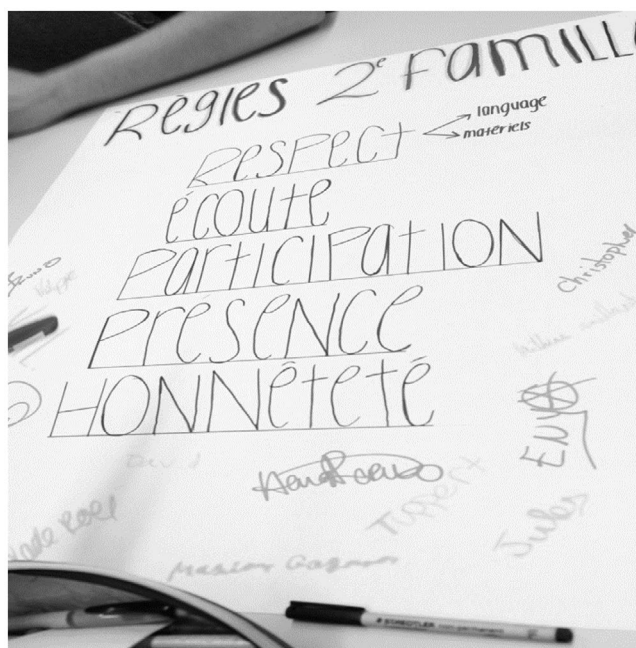 Règles 2e Famill
Respect
language
matériels
écoute
Participation
Présence
Honnêteté
Christopher
David
Jules
Maxim Gagnon
STAEDTLER